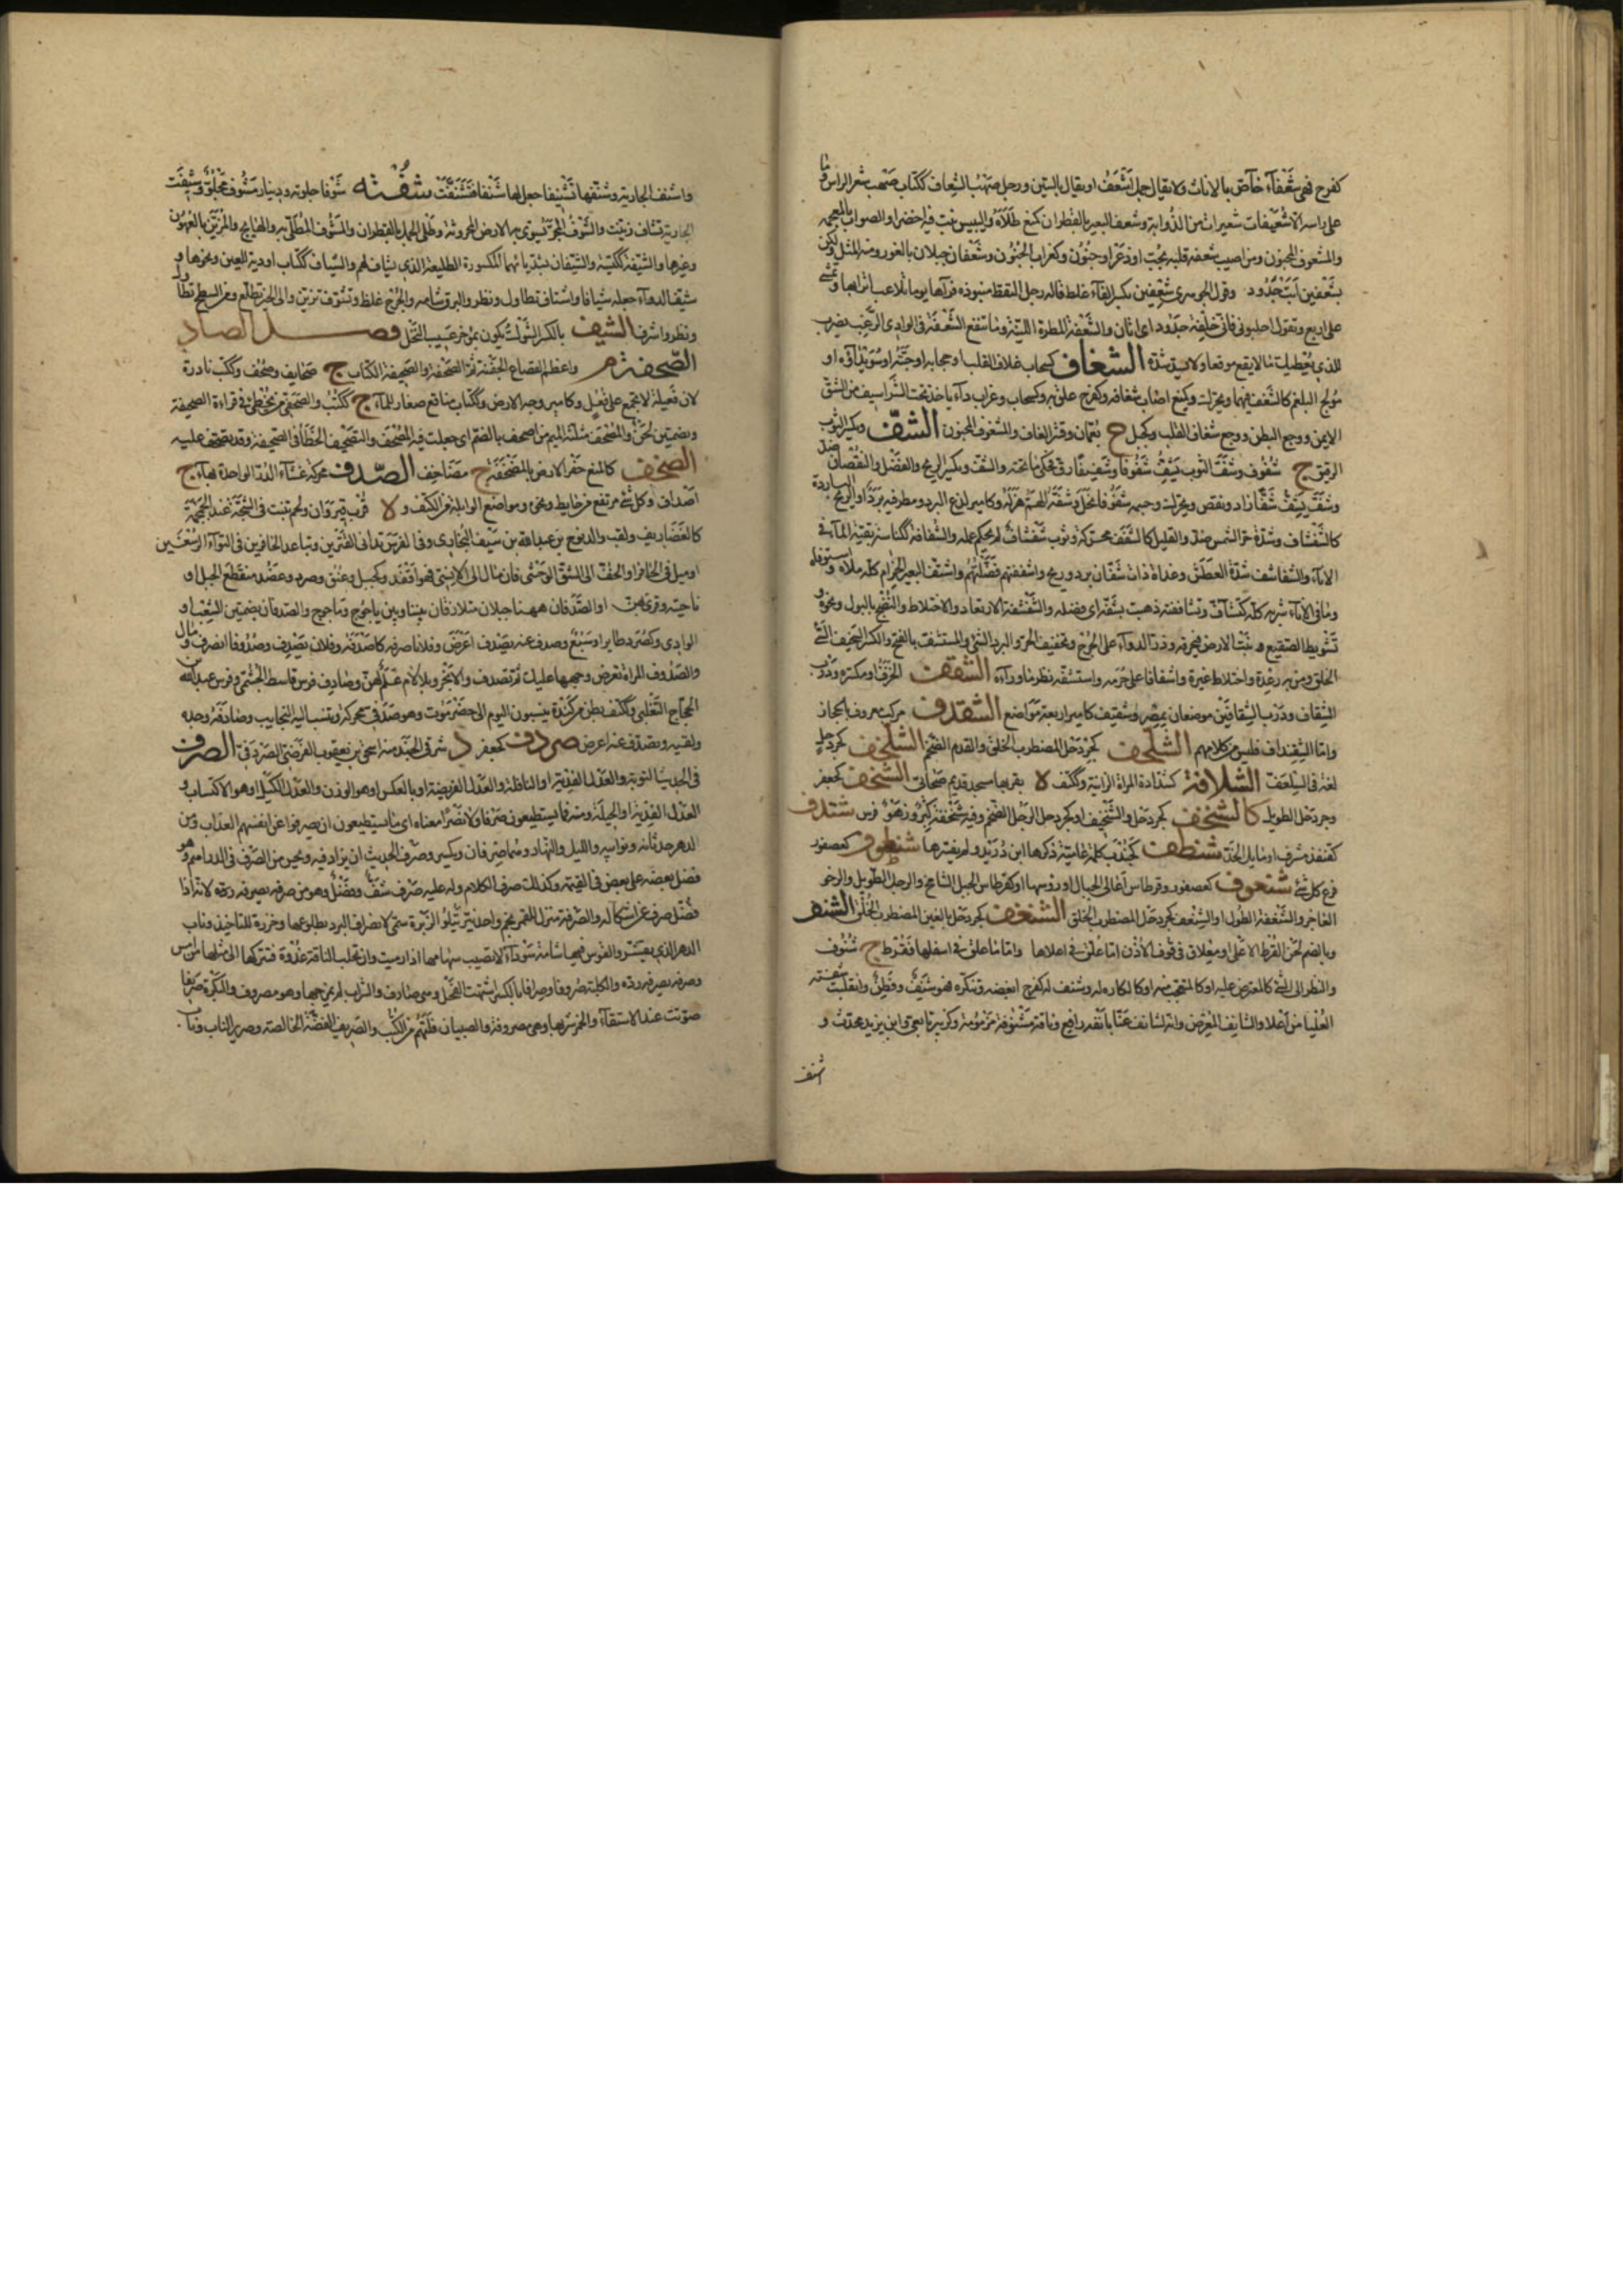 كفرح فهي شعفآء خاص بالاناث ولا يقال جمل اشعف او يقال بالسين ورجل صهب الشعاف ككتاب صهب شعر الراس وما
على راسه الا شعيفات شعيرات من الذوابة وشعف البعير بالقطران كمنع طلاه واليبيس نبت فيه اخضر او الصواب بالمعجمة
والمشعوف المجنون ومن اصيب شعفة قلبه بحب او ذعر او جنون وكغراب الجنون وشعفان جبلان بالغور ومنه المثل ولكن
بشعفين انت جدود وقول الجوهري شعفين بكسر الفآء غلط قاله رجل التقط منبوذة فرآها يوما تلاعب اترابها وتمشي
على اربع وتقول احلبوني فاني خلفة جدود اي اتان والشعفة المطرة اللينة وما تنفع الشعفة في الوادي الرغب يضرب
للذي يعطيك ما لا يقع موقعا ولا يسد مسده الشغاف كسحاب غلاف القلب او حجابه او حبته او سويدآؤه او
مولج البلغم كالشغف فيهما ويحرك وكمنع اصاب شغافه وكفرح علق به وكسحاب وغراب دآء ياخذ تحت الشراسيف من الشق
الايمن ووجع البطن ووجع شغاف القلب وكجبل ح بعمان وقشر الغاف والمشغوف المجنون الشف ويكسر الثوب
الرقيق ج شفوف وشف الثوب يشف شفوفا وشفيفا رق فحكى ما تحته والشف ويكسر الريح والفضل والنقصان ضد
وشف يشف شفا زاد ونقص ويحرك وجسمه شفوفا نحل وشفه الهم هزله وكامير لذع البرد ومطر فيه برد او الريح الباردة
كالشفشاف وشدة حر الشمس ضد والقليل كالشفف محركة وثوب شفشاف لم يحكم عمله والشفافة ككناسة بقية المآء في
الانآء والشفاشف شدة العطش وغداة ذات شفان برد وريح واشففتهم فضلتهم واشتف البعير الحزام كله ملاه واستوفاه
وما في الانآء شربه كله كتشافه وتشاففته ذهبت بشفه اي فضله والشفشفة الارتعاد والاختلاط والنضح بالبول ونحوه و
تشويط الصقيع نبت الارض فيحرقه وذر الدوآء على الجرح وتجفيف الحر والبرد الشي والمشفشف بالفتح والكسر السخيف السيئ
الخلق ومن به رعدة واختلاط غيرة واشفاقا على حرمه واستشفه نظر ما ورآءه الشقف الخزف او مكسره ودرب
الشقاف ودرب الشقافين موضعان بمصر وشقيف كامير اربعة مواضع الشقدف مركب معروف بالحجاز
واما الشقنداف فليس من كلامهم الشلحف كجردحل المضطرب الخلق والقدم الضخم الشلخف كجردحل
لغة في السلعف الشلافة كشدادة المراة الزانية وككتف لا بقربها مسجد قديم صحابي الشنحف كجعفر
وجردحل الطويل كالشنخف كجردحل والشنخيف او كجردحل الرجل الضخم وفيه شنخفة كبر وزهو فرس شندف
كقنفذ مشرف او مايل الخد شنطف كجندب كلمة عامية ذكرها ابن دريد ولم يفسرها شنظوف كعصفور
فرع كل شئ شنعوف كعصفور وقرطاس اعالي الجبال او رؤسها او كقرطاس الجبل الشامخ والرجل الطويل والرخو
العاجز والشنعفة الطول او الشنعف كجردحل المضطرب الخلق الشنغف كجردحل بالغين المضطرب الخلق الشنف
وبالضم لحن القرط الاعلى او معلاق في قوف الاذن او ما علق في اعلاها واما ما علق في اسفلها فقرط ج شنوف
والنظر الى الشئ كالمعترض عليه او كالمتعجب منه او كالكاره له وشنف له كفرح ابغضه وتنكره فهو شنف وفطن وانقلبت شفته
العليا من اعلا والشانف المعرض وانه لشانف عنا بانفه رافع وناقة مشنوفة مزمومة وكزبير تابعي وابن يزيد محدث و
اشنف
واشنف الجارية وشنفها تشنيفا جعل لها شنفا فتشنفت شفته شوفا جلوته ودينار مشوف مجلو وشيفت
الجارية تشاف زينت والشوف المجر تسوى به الارض المحروثة وطلي الجمل بالقطران والمشوف المطلي به والهايج والمزين بالعهون
وغيرها والشيفة ككيسة والشيفان مشددة يائهما المكسورة الطليعة الذي يشتاف لهم والشياف ككتاب ادوية للعين ونحوها و
شيف الدوآء جعله شيافا واشتاف تطاول ونظر والبرق شامه والجرح غلظ وتشوف تزين والى الخبر تطلع ومن السطح تطاول
ونظر واشرف الشيف بالكسر الشوك يكون بمؤخر عسيب النخل فصل الصاد
الصحفة م واعظم القصاع الجفنة ثم الصحفة والصحيفة الكتاب ج صحايف وصحف ككتب نادرة
لان فعيلة لا تجمع على فعل وكامير وجه الارض وككتاب مناقع صغار للمآء ج ككتب والصحفي من يخطئ في قراءة الصحيفة
وبضمتين لحن والمصحف مثلثة الميم من اصحف بالضم اي جعلت فيه الصحف والتصحيف الخطأ في الصحيفة وقد تصحف عليه
الصخف كالمنع حفر الارض بالمصخفة ج مصاخف الصدف محركة غشآء الدر الواحدة بهآء ج
اصداف وكل شئ مرتفع من حايط ونحوه وموضع الوابلة من الكتف و لا قرب قيروان ولحم تنبت في الشجة عند الجمجمة
كالغضاريف ولقب والد نوح بن عبد الله بن سيف البخاري وفي الفرس تداني الفخذين وتباعد الحافرين في التوآء الرسغين
او ميل في الحافر او الخف الى الشق الوحشي فان مال الى الانسي فهو اقفد وكجبل وعنق وصرد وعضد منقطع الجبل او
ناحيته وقرئ بهن او الصدفان ههنا جبلان متلازقان بيننا وبين ياجوج وماجوج والصدفان بضمتين الشعب او
الوادي وكصرد طاير او سبع وصدف عنه يصدف اعرض وفلانا صرفه كاصدفه وفلان يصدف وصدوفا انصرف ومال
والصدوف المراة تعرض وجهها عليك ثم تصدف والابخر وبلا لام علم لهن وصادف فرس قاسط الجشمي وفرس عبد الله بن
الحجاج الثعلبي وككتف بطن من كندة ينسبون اليوم الى حضرموت وهو صدفي محركة وتنسب اليه النجايب وصادفه وجده
ولقيه وتصدف عنه اعرض صردف كجعفر د شرقي الجند منه اسحق بن يعقوب الفرضي الصردفي الصرف
في الحديث التوبة والعدل الفدية او النافلة والعدل الفريضة او بالعكس او هو الوزن والعدل الكيل او هو الاكتساب و
العدل الفدية او الحيلة ومنه فما يستطيعون صرفا ولا نصرا معناه اي ما يستطيعون ان يصرفوا عن انفسهم العذاب ومن
الدهر حدثانه ونوائبه والليل والنهار وهما صرفان ويكسر وصرف الحديث ان يزاد فيه ويحسن من الصرف في الدراهم وهو
فضل بعضه على بعض في القيمة وكذلك صرف الكلام وله عليه صرف شف وفضل وهو من صرفه يصرفه لانه اذا
فضل صرف عن اشكاله والصرفة منزل للقمر نجم واحد نير يتلو الزبرة سمي لانصراف البرد بطلوعها وخرزة للتاخيذ وناب
الدهر الذي يفتر والقوس فيها شامة سودآء لا تصيب سهامها اذا رميت وان تحلب الناقة غدوة فتتركها الى مثلها من امس
وصرفه يصرفه رده والكلبة صروفا وصرافا بالكسر اشتهت الفحل وهي صارف والشراب لم يمزجها وهو مصروف والبكرة صريفا
صوتت عند الاستقآء والخمر شربها وهي مصروفة والصبيان قلبتهم من المكتب والصريف الفضة الخالصة وصرير الناب وباب